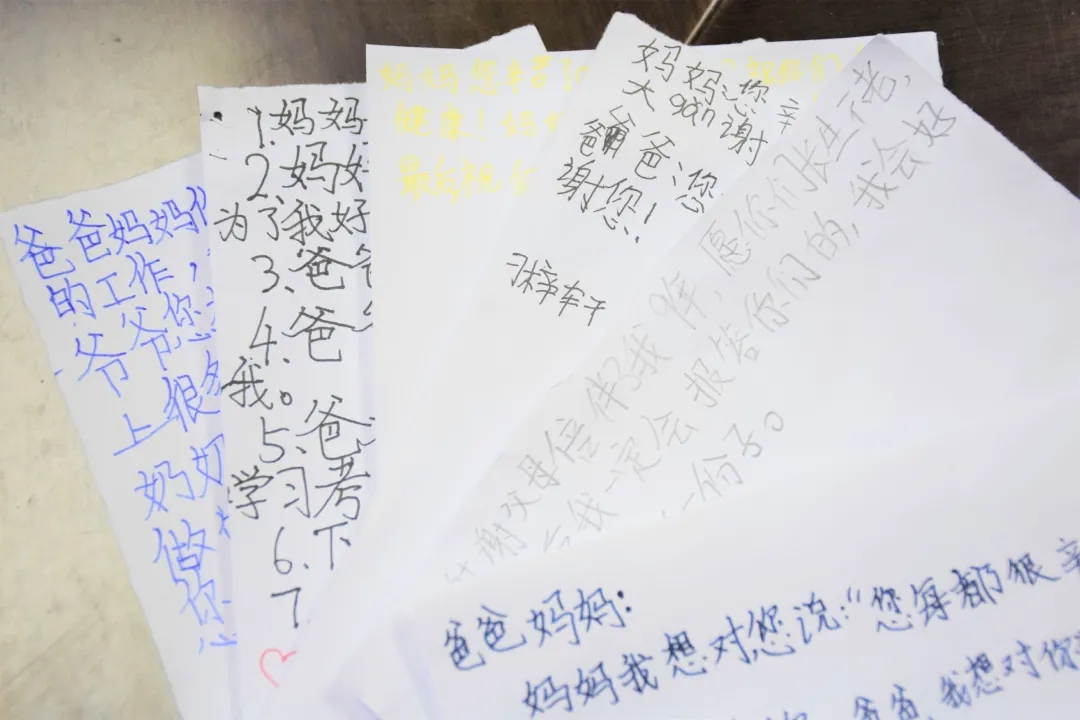 爸爸妈妈
的工作,
爷爷您
上很多
奶奶
做
你
1.妈妈
2.妈妈
为了我好
3.爸爸
4.爸
我。
5.爸爸
学习考
6.下
7
妈妈您辛苦了
健康!妈
最后祝全
妈妈:您辛
大gǎn谢
爸爸:您
谢您!
谢父母陪伴了我9年,愿你们长生不老,
我一定会报答你们的,我会好
一份子。
爸爸妈妈:
妈妈我想对您说:“您每都很辛
爸爸,我想对你